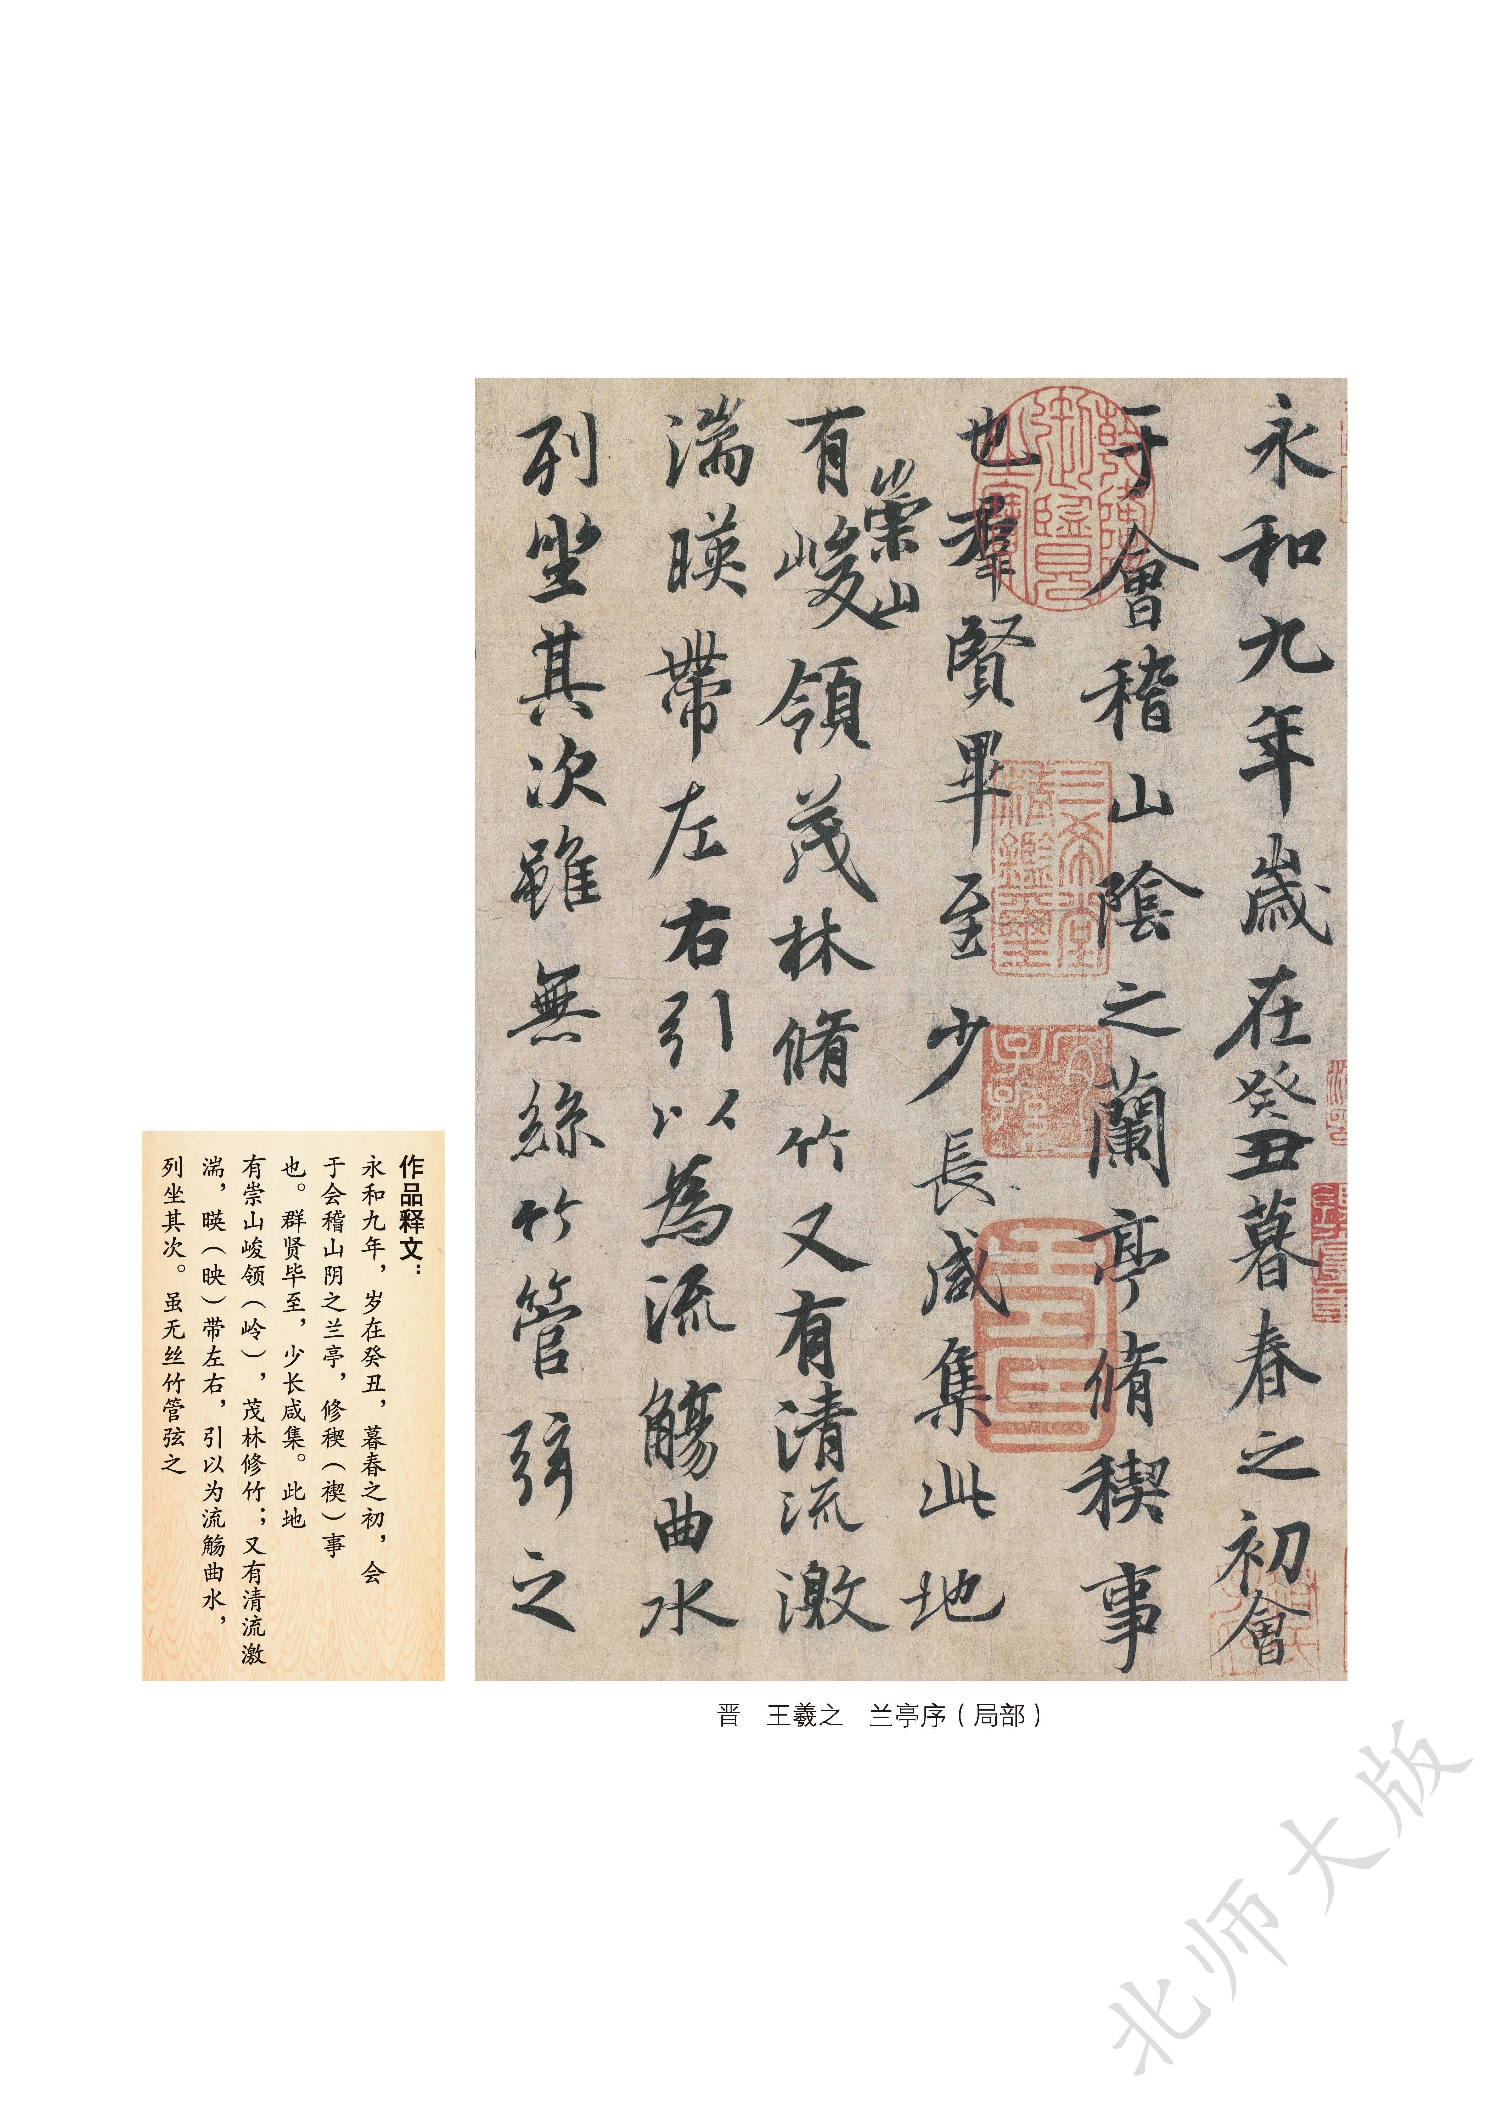 永和九年歲在癸丑暮春之初會
于會稽山陰之蘭亭脩稧事
也羣賢畢至少長咸集此地
有崇山峻領茂林脩竹又有清流激
湍暎帶左右引以為流觴曲水
列坐其次雖無絲竹管弦之
作品释文：
永和九年，岁在癸丑，暮春之初，会
于会稽山阴之兰亭，修稧（禊）事
也。群贤毕至，少长咸集。此地
有崇山峻领（岭），茂林修竹；又有清流激
湍，暎（映）带左右，引以为流觞曲水，
列坐其次。虽无丝竹管弦之
晋 王羲之 兰亭序（局部）
北师大版